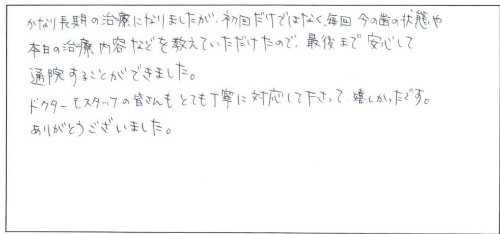 かなり長期の治療になりましたが、初回だけではなく、毎回 今の歯の状態や
本日の治療内容などを教えていただけたので、最後まで安心して
通院することができました。
ドクターもスタッフの皆さんもとても丁寧に対応して下さって 嬉しかったです。
ありがとうございました。